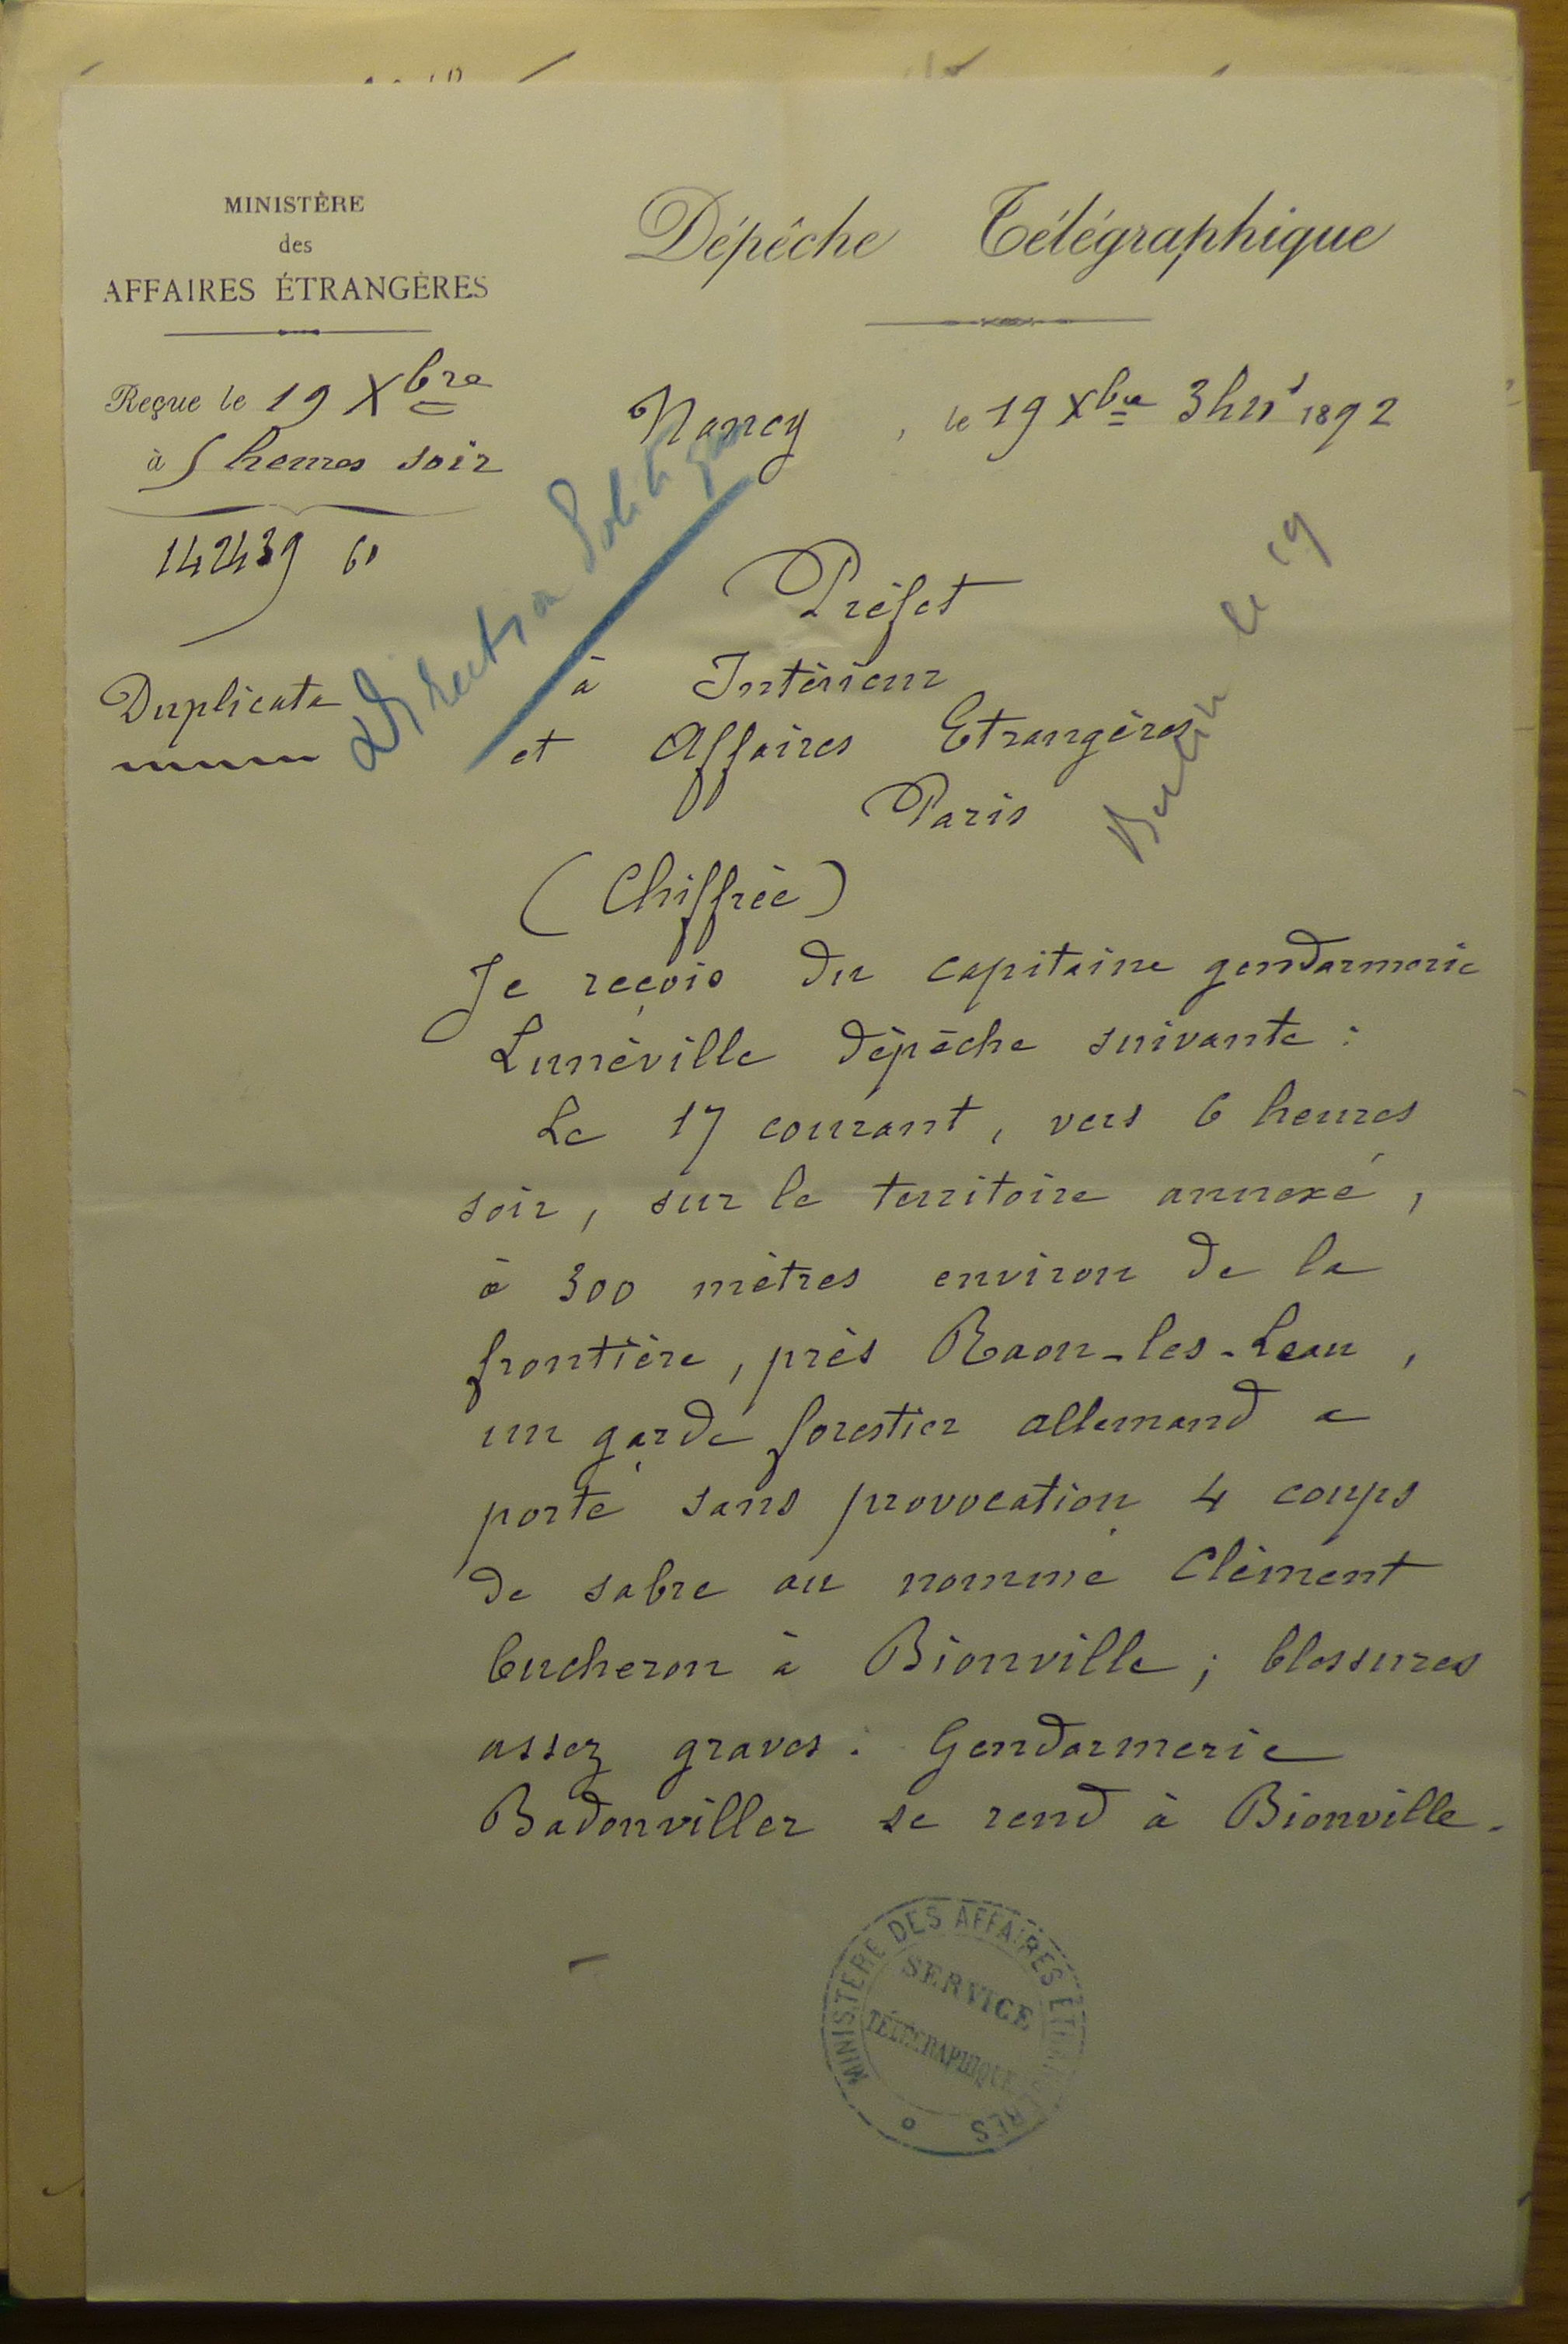 MINISTÈRE
des
AFFAIRES ÉTRANGÈRES
Dépêche Télégraphique
Reçue le 19 Xbre
à 5 heures soir
Nancy, le 19 Xbre 3h 1892
142439
Duplicata
Direction Politique
Berlin le 19
Préfet
à Intérieur
et Affaires Etrangères
Paris
(Chiffrée)
Je reçois du capitaine gendarmerie
Lunéville dépêche suivante :
Le 17 courant, vers 6 heures
soir, sur le territoire annexé,
à 300 mètres environ de la
frontière, près Raon-les-Leau,
un garde forestier allemand a
porté sans provocation 4 coups
de sabre au nommé Clément
bucheron à Bionville ; blessures
assez graves. Gendarmerie
Badonviller se rend à Bionville.
MINISTÈRE DES AFFAIRES ÉTRANGÈRES
SERVICE
TÉLÉGRAPHIQUE